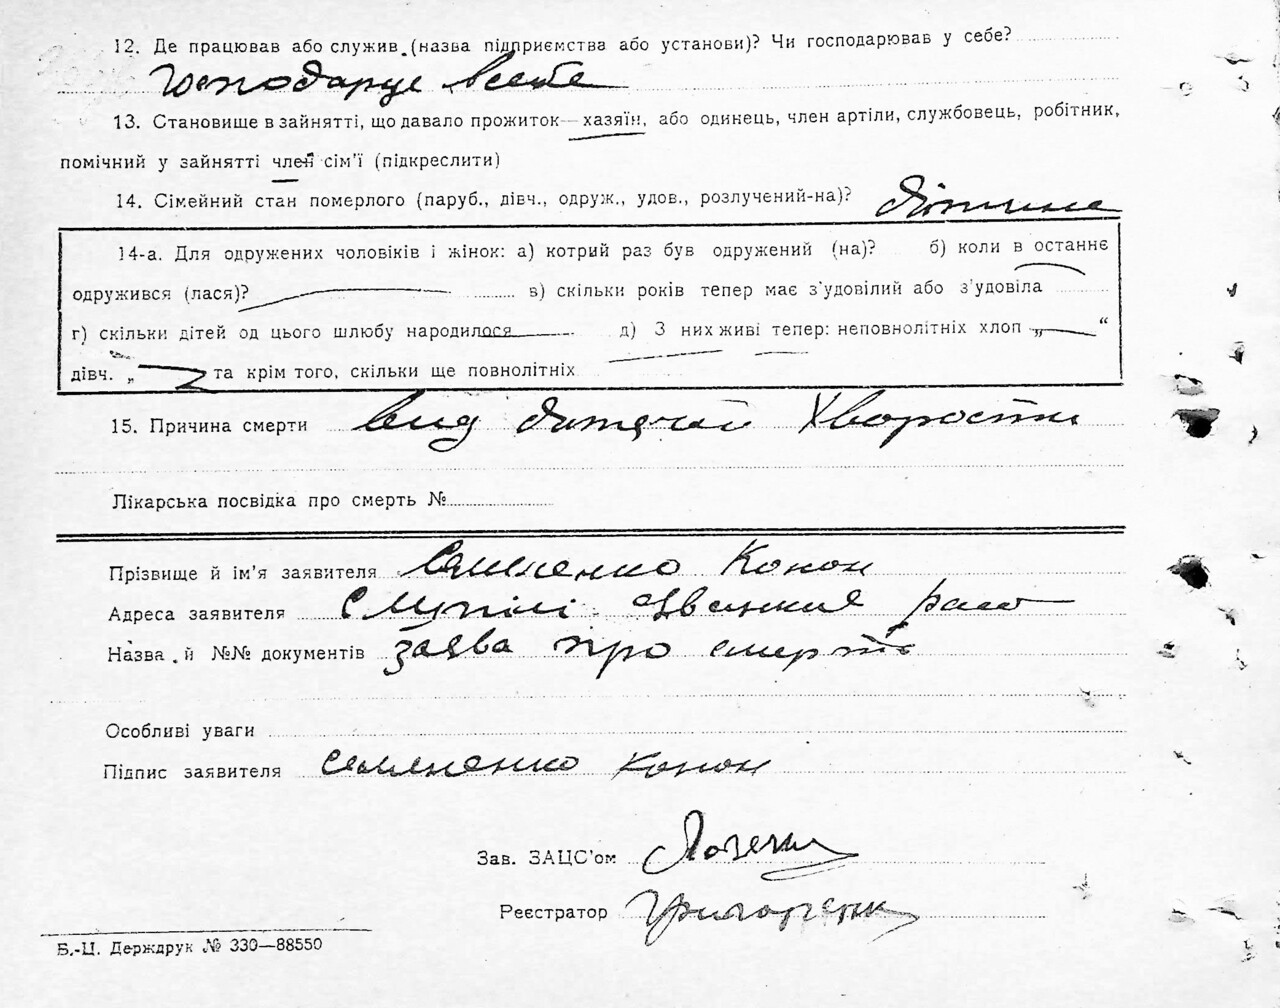 12. Де працював або служив (назва підприємства або установи)? Чи господарював у себе?
господарує всебе
13. Становище в зайнятті, що давало прожиток—хазяїн, або одинець, член артіли, службовець, робітник,
помічний у зайнятті член сім'ї (підкреслити)
14. Сімейний стан померлого (паруб., дівч., одруж., удов., розлучений-на)? дітина
14-а. Для одружених чоловіків і жінок: а) котрий раз був одружений (на)? б) коли в останнє
одружився (лася)? в) скільки років тепер має з'удовілий або з'удовіла
г) скільки дітей од цього шлюбу народилося д) З них живі тепер: неповнолітніх хлоп „ “
дівч. „ та крім того, скільки ще повнолітніх
15. Причина смерти вид дитячай Хворости
Лікарська посвідка про смерть №
Прізвище й ім'я заявителя Семененко Конон
Адреса заявителя
Назва й №№ документів заява про смерть
Особливі уваги
Підпис заявителя Семененко Конон
Зав. ЗАЦС'ом
Реєстратор
Б.-Ц. Держдрук № 330—88550